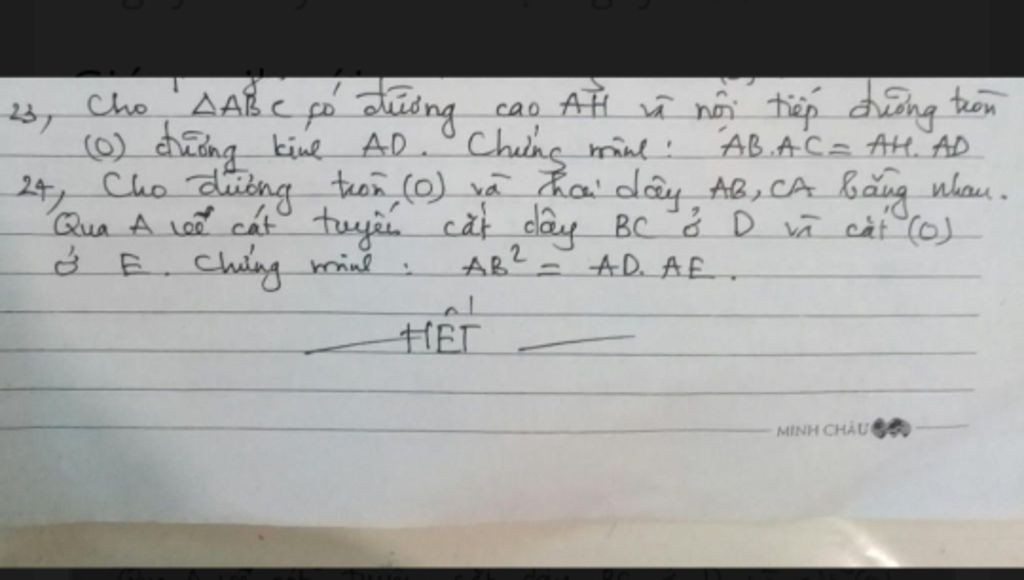 23, Cho ΔABC có đường cao AH và nội tiếp đường tròn
(O) đường kính AD. Chứng minh: AB.AC = AH.AD
24, Cho đường tròn (O) và hai dây AB, CA bằng nhau.
Qua A vẽ cát tuyến cắt dây BC ở D và cắt (O)
ở E. Chứng minh: AB² = AD.AE.
HẾT
MINH CHÂU